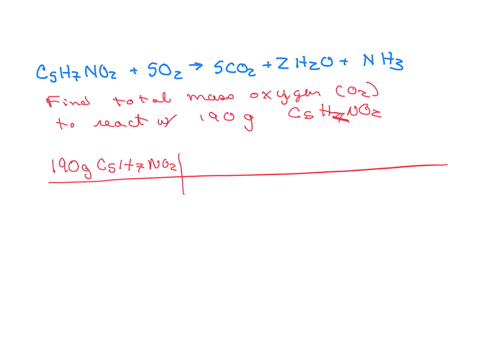 C5H7NO2 + 5O2 → 5CO2 + 2H2O + NH3
Find total mass oxygen (O2)
to react w/ 190g C5H7NO2
190g C5H7NO2